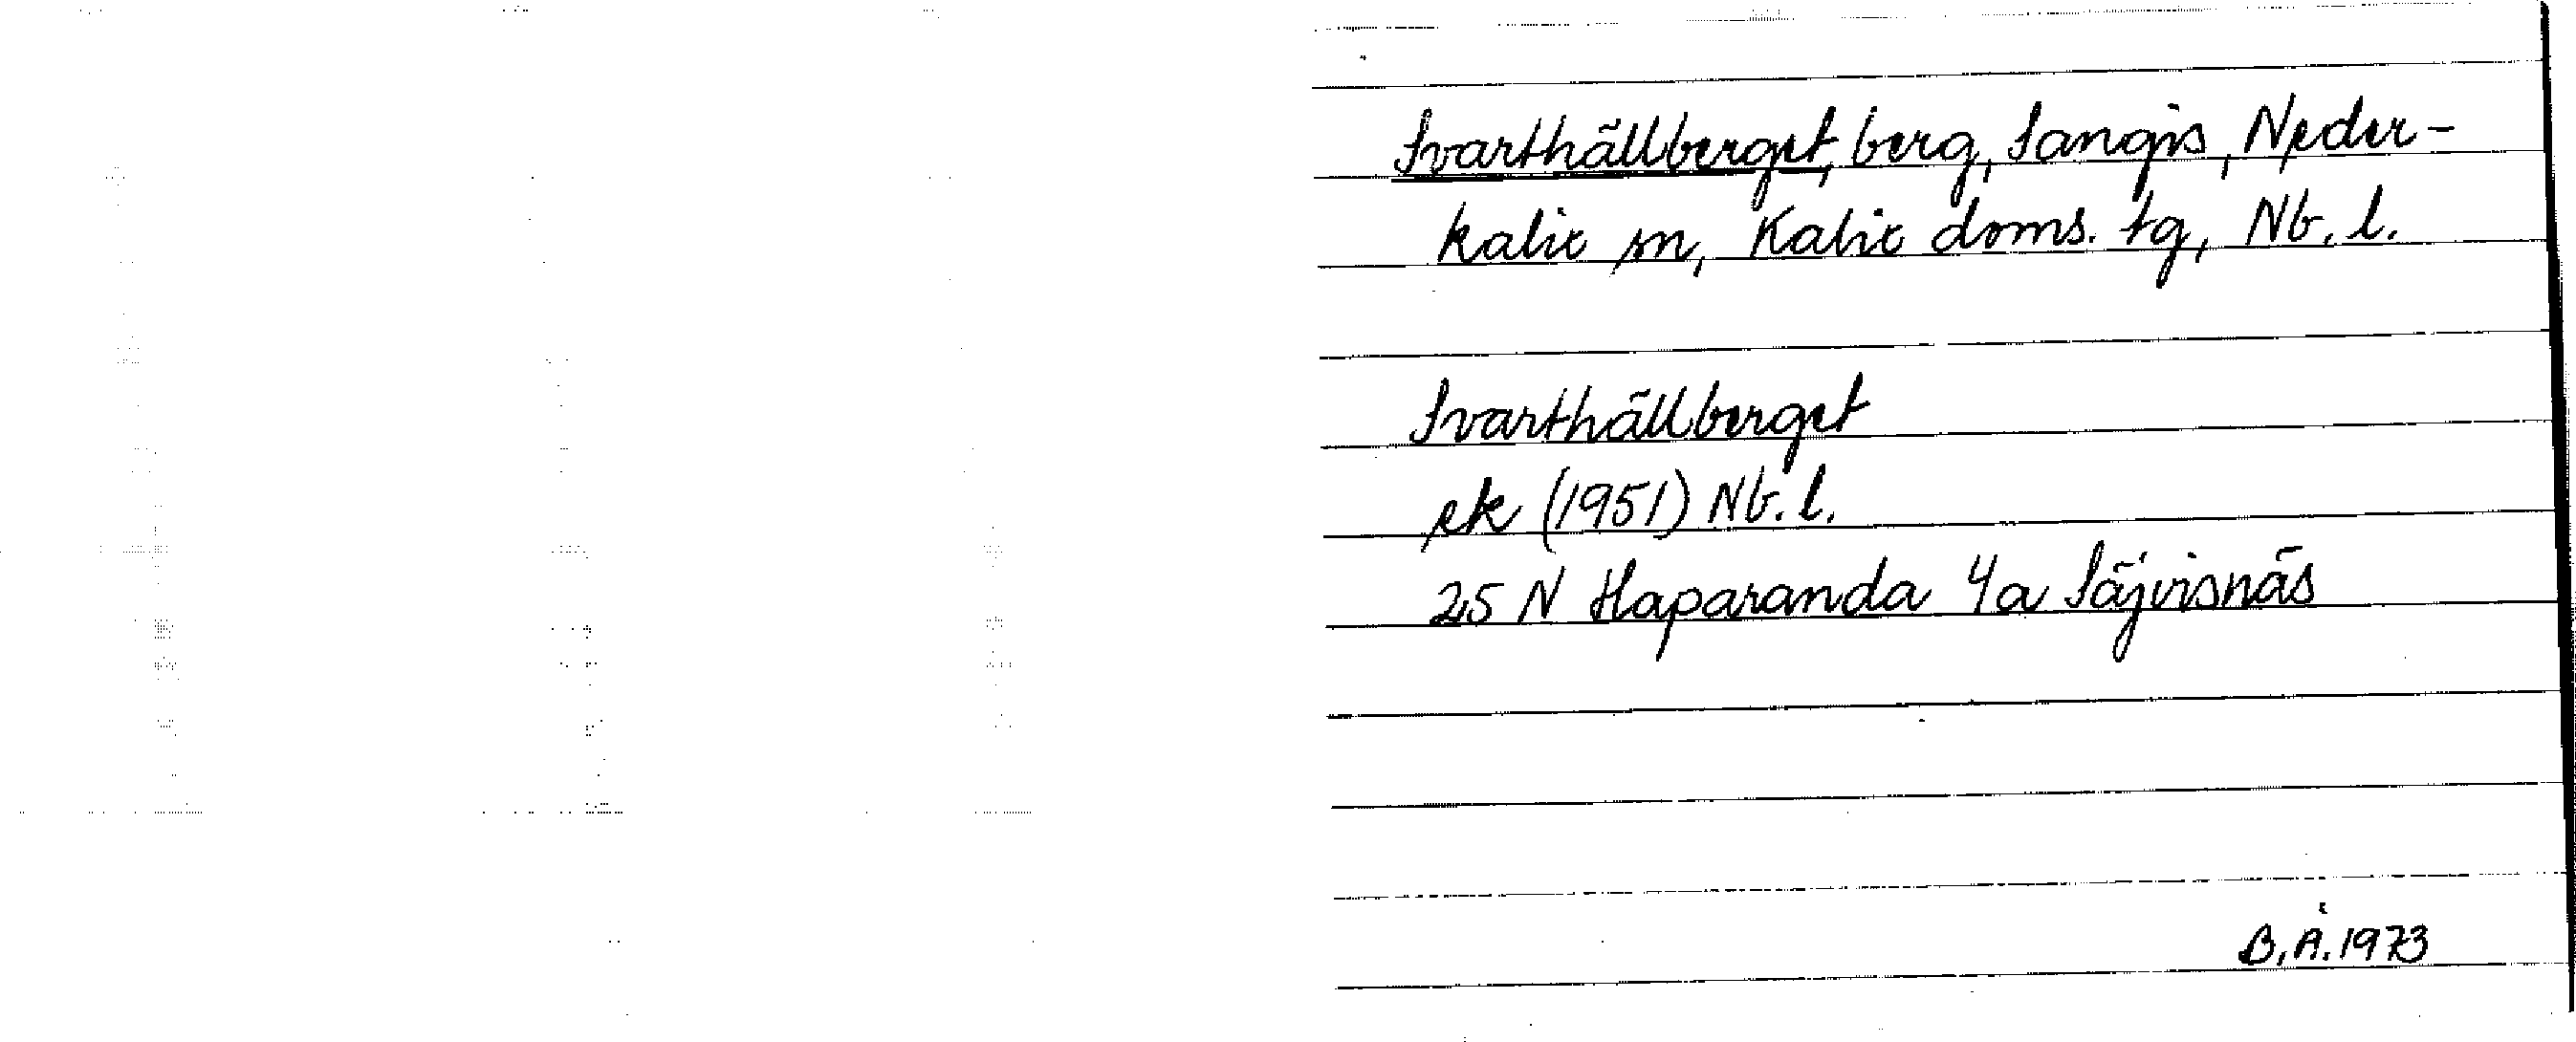 Svarthällberget, berg, Sangis, Neder-
kalix sn, Kalix doms. tg, Nb. l.
Svarthällberget
ek (1951) Nb. l.
25 N Haparanda 4a Säjvisnäs
B.Å. 1973